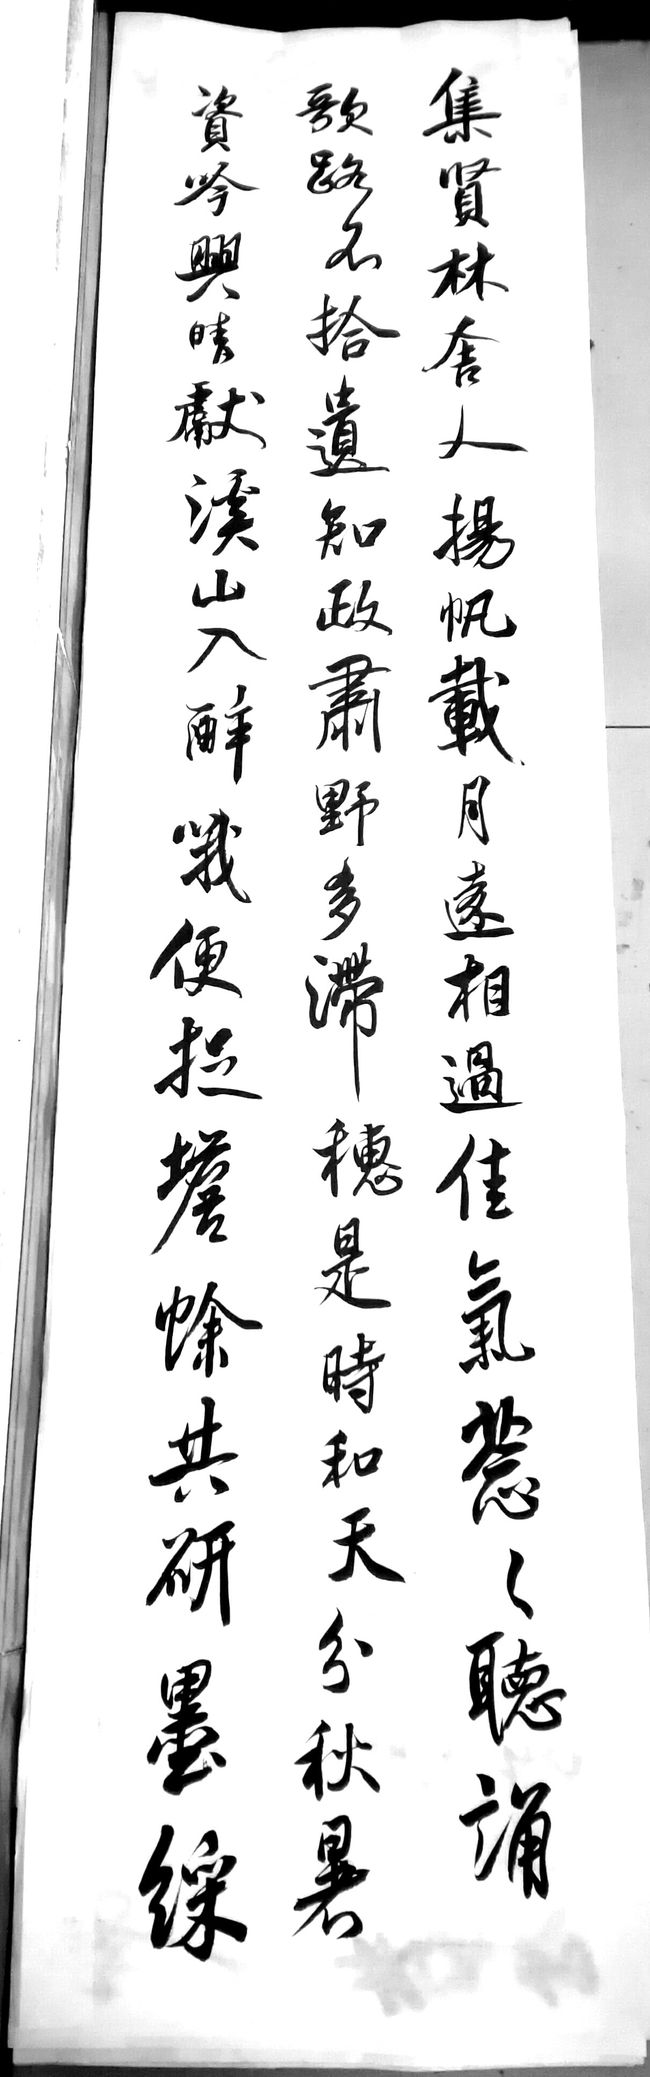 集賢林舍人揚帆載月遠相過佳氣蔥〻聽誦
歌路不拾遺知政肅野多滯穗是時和天分秋暑
資吟興晴獻溪山入醉哦便捉蟾蜍共研墨綵